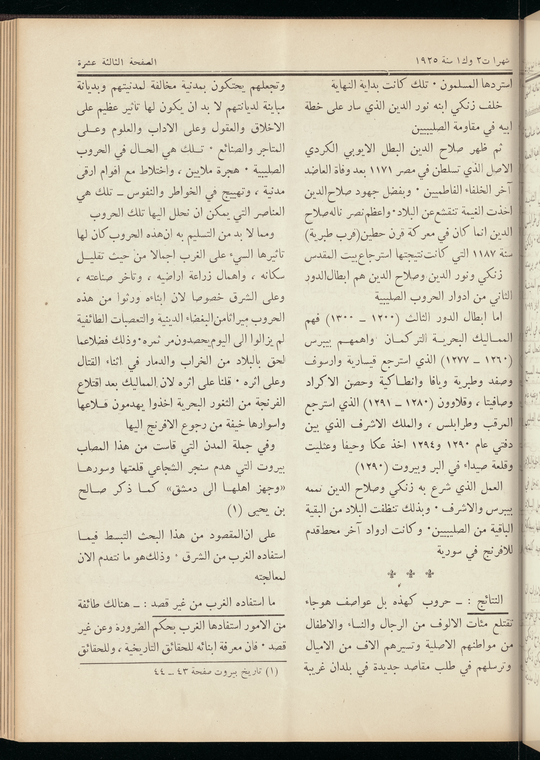 شهرا ت٢ وك١ سنة ١٩٢٥
الصفحة الثالثة عشرة
استردها المسلمون · تلك كانت بداية النهاية
خلف زنكي ابنه نور الدين الذي سار على خطة
ابيه في مقاومة الصليبيين
ثم ظهر صلاح الدين البطل الايوبي الكردي
الاصل الذي تسلطن في مصر ١١٧١ بعد وفاة العاضد
آخر الخلفاء الفاطميين · وبفضل جهود صلاح الدين
اخذت الغيمة تنقشع عن البلاد · واعظم نصر ناله صلاح
الدين انما كان في معركة قرن حطين (قرب طبرية)
سنة ١١٨٧ التي كانت نتيجتها استرجاع بيت المقدس
زنكي ونور الدين وصلاح الدين هم ابطال الدور
الثاني من ادوار الحروب الصليبية
اما ابطال الدور الثالث (١٢٠٠ – ١٣٠٠) فهم
المماليك البحرية التركمان واهمهم بيبرس
(١٢٦٠ – ١٢٧٧) الذي استرجع قيسارية وارسوف
وصفد وطبرية ويافا وانطاكية وحصن الاكراد
وصافيتا ، وقلاوون (١٢٨٠ – ١٢٩١) الذي استرجع
المرقب وطرابلس ، والملك الاشرف الذي بين
دفتي عام ١٢٩٠ و١٢٩٤ اخذ عكا وحيفا وعثليت
وقلعة صيداء في البر وبيروت (١٢٩٠)
العمل الذي شرع به زنكي وصلاح الدين تممه
بيبرس والاشرف · وبذلك تنظفت البلاد من البقية
الباقية من الصليبيين · وكانت ارواد آخر محط قدم
للافرنج في سورية
النتائج : – حروب كهذه بل عواصف هوجاء
تقتلع مئات الالوف من الرجال والنساء والاطفال
من مواطنهم الاصلية وتسيرهم الاف من الاميال
وترسلهم في طلب مقاصد جديدة في بلدان غريبة
وتجعلهم يحتكون بمدنية مخالفة لمدنيتهم وبديانة
مباينة لديانتهم لا بد ان يكون لها تاثير عظيم على
الاخلاق والعقول وعلى الاداب والعلوم وعلى
المتاجر والصنائع · تلك هي الحال في الحروب
الصليبية · هجرة ملايين ، واختلاط مع اقوام ارقى
مدنية ، وتهييج في الخواطر والنفوس – تلك هي
العناصر التي يمكن ان نحلل اليها تلك الحروب
ومما لا بد من التسليم به ان هذه الحروب كان لها
تاثيرها السيء على الغرب اجمالا من حيث تقليل
سكانه ، واهمال زراعة اراضيه ، وتاخر صناعته ،
وعلى الشرق خصوصا لان ابناءه ورثوا من هذه
الحروب ميراثا من البغضاء الدينية والتعصبات الطائفية
لم يزالوا الى اليوم يحصدون مر ثمره · وذلك فضلا عما
لحق بالبلاد من الخراب والدمار في اثناء القتال
وعلى اثره · قلنا على اثره لان المماليك بعد اقتلاع
الفرنجة من الثغور البحرية اخذوا يهدمون قلاعها
واسوارها خيفة من رجوع الافرنج اليها
وفي جملة المدن التي قاست من هذا المصاب
بيروت التي هدم سنجر الشجاعي قلعتها وسورها
«وجهز اهلها الى دمشق» كما ذكر صالح
بن يحيى (١)
على ان المقصود من هذا البحث التبسط فيما
استفاده الغرب من الشرق · وذلك هو ما نتقدم الان
لمعالجته
ما استفاده الغرب من غير قصد : – هنالك طائفة
من الامور استفادها الغرب بحكم الضرورة وعن غير
قصد · فان معرفة ابنائه للحقائق التاريخية ، وللحقائق
(١) تاريخ بيروت صفحة ٤٣ – ٤٤